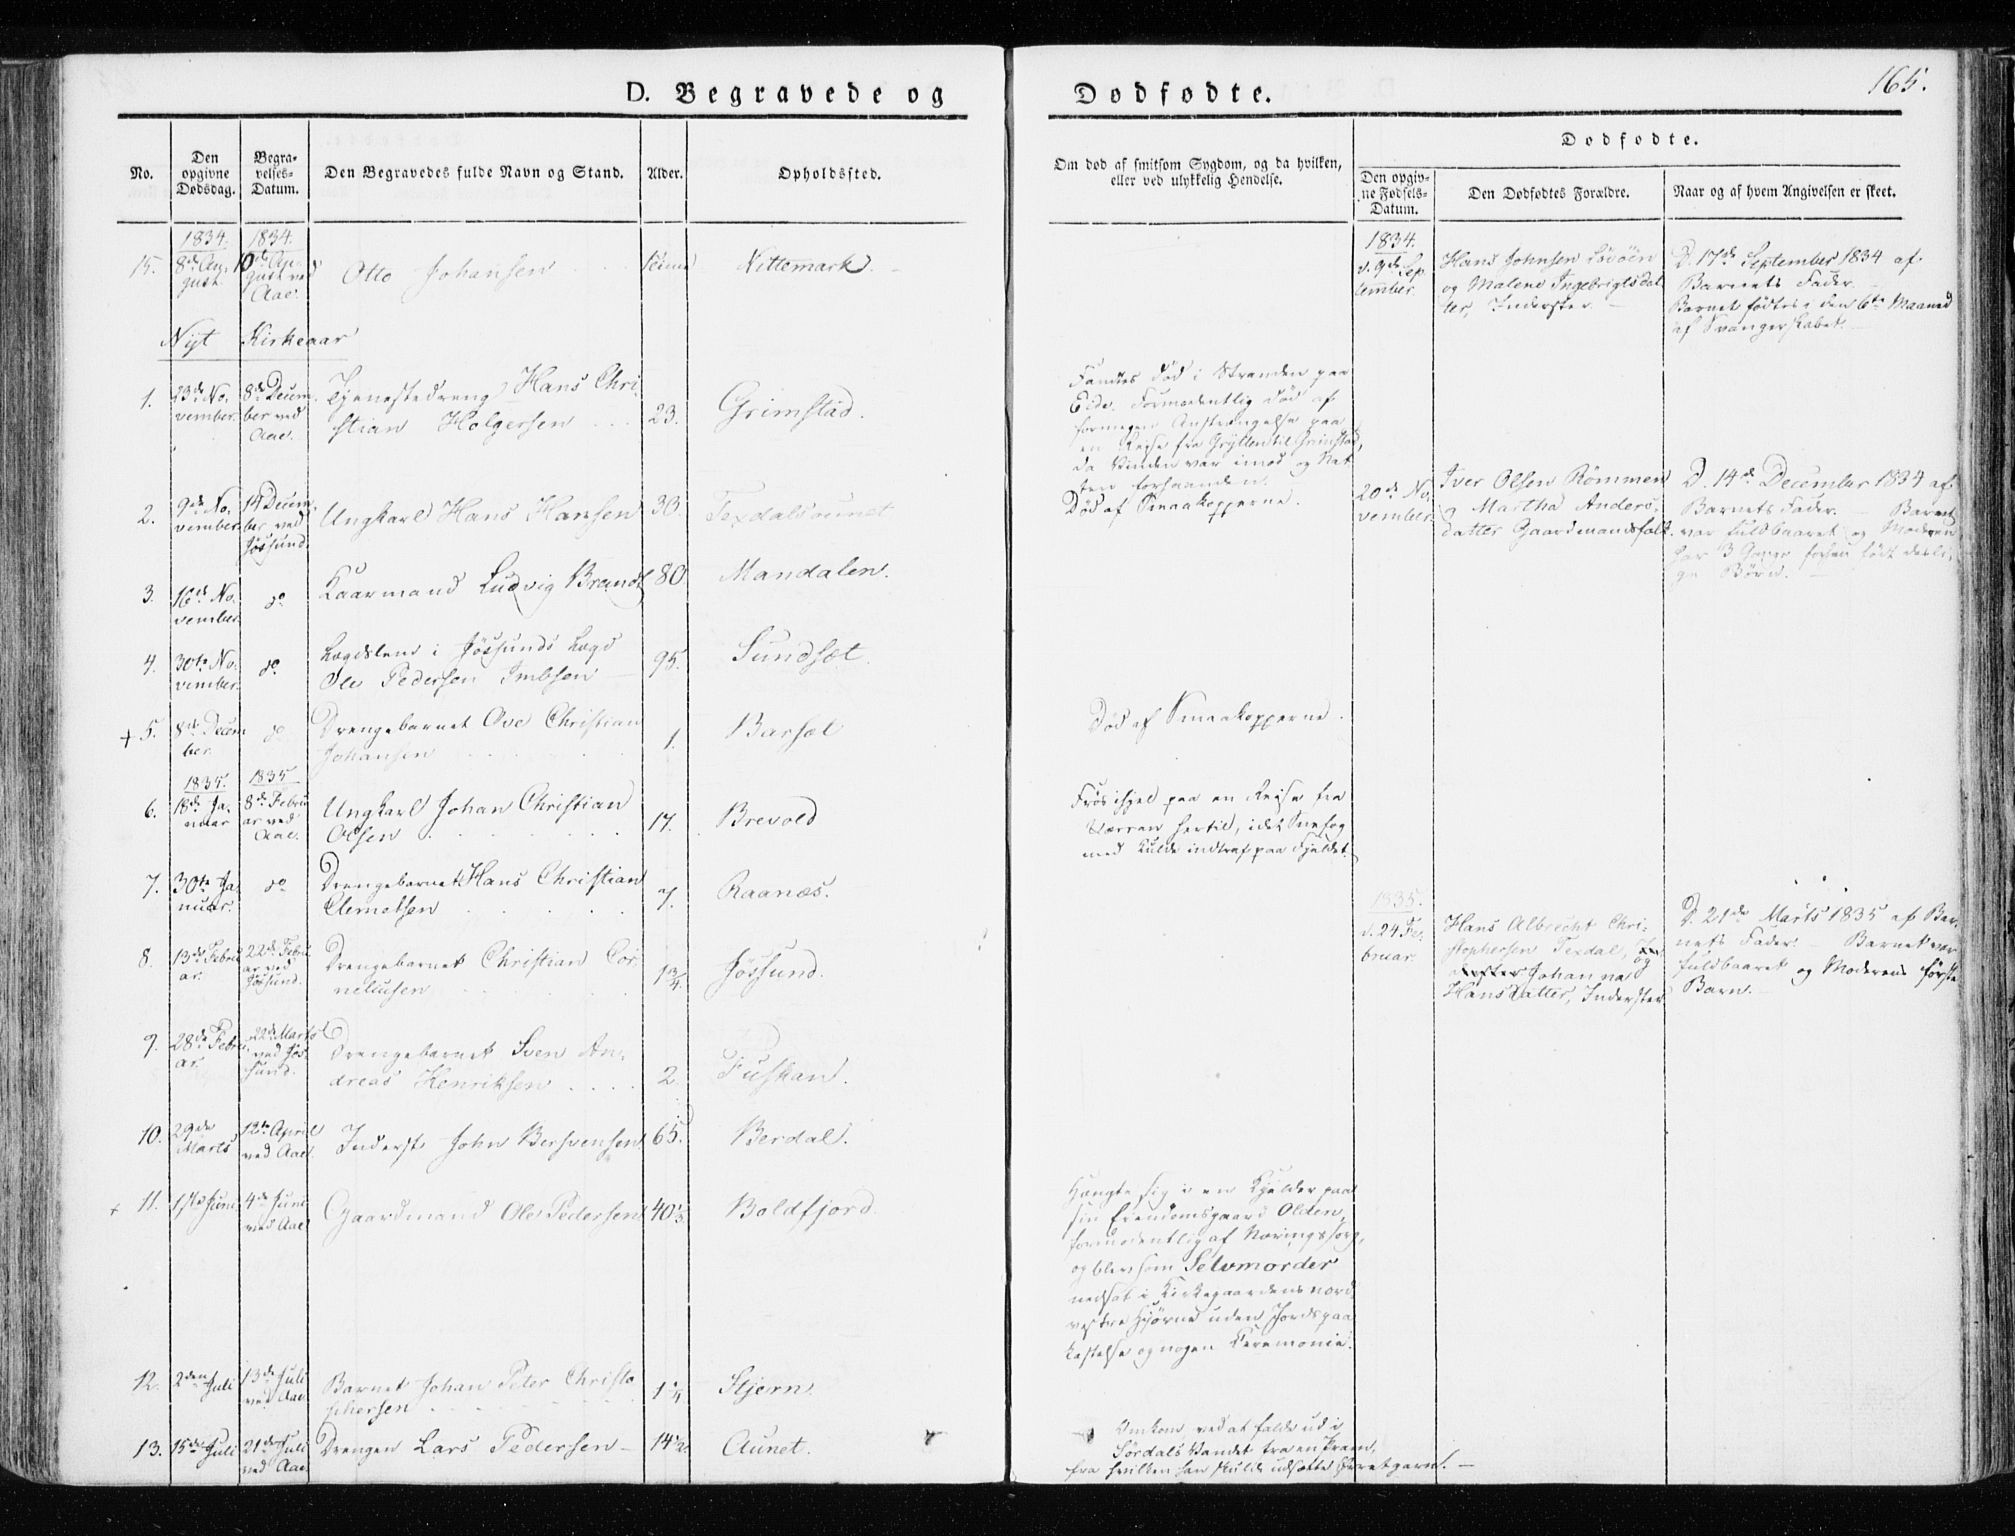 165.
D. Begravede og Dødfødte.
No.
Den opgivne Dødsdag.
Begra-velses-Datum.
Den Begravedes fulde Navn og Stand.
Alder.
Opholdssted.
Om død af smitsom Sygdom, og da hvilken, eller ved ulykkelig Hendelse.
Dødfødte.
Den opgiv-ne Fødsels-Datum.
Den Dødfødtes Forældre.
Naar og af hvem Angivelsen er skeet.
1834. 1834.
15. 8de Au-gust 10de Au-gust ved Aae. Otto Johansen Nittemark.
1834.
d. 9de Sep-tember.
Hans Johnsen
og Malene Ingebrigtsdat-
ter, Inderster.
D. 17de September 1834 af
Barnets Fader.
Barnet fødtes i den 6te Maaned
af Svangerskabet.
Nyt Kirkeaar
1. 23de No-vember. 8de Decem-ber ved Aae. Tjenestedreng Hans Chri-
stian Holgersen 23. Grimstad.
Fandtes død i Stranden paa
Eide. Formodentlig død af
formegen Anstrængelse paa
en Reise fra Grytten til Grimstad,
da Vinden var imod og Nat-
ten forhaanden.
2. 9de No-vember. 14de Decem-ber ved Jøssund. Ungkarl Hans Hansen 30. Texdalsaunet
Død af Smaakopperne.
20de No-vember.
Iver Olsen Rømmen
og Martha Anders-
datter Gaardmandsfolk.
D. 14de December 1834 af
Barnets Fader. Barnet
var fuldbaaret og Moderen
har 3 Gange forhen født desli-
ge Børn.
3. 16de No-vember do Kaarmand Ludvig Brandt 80. Mandalen.
4. 30te No-vember. do Lægdslem i Jøssunds Lægd
Ole Pedersen Imbsen 95. Sundsæt.
+ 5. 8de Decem-ber. do Drengebarnet Ove Christian
Johansen 1. Barsæt
Død af Smaakopperne.
1835. 1835
6. 18de Ja-nuar 8de Febru-ar ved Aae. Ungkarl Johan Christian
Olsen 17. Brevold
Frøs ihjel paa en Reise fra
Værran hertil, idet Snefog
med Kulde indtraf paa Fjeldet.
7. 30te Ja-nuar. do Drengebarnet Hans Christian
Clemetsen 7. Raanæs.
1835.
d. 24 Fe-bruar.
Hans Albrecht Chri-
stophersen Texdal, og
Johanna
Hansdatter, Inderster
D. 21de Marts 1835 af Bar-
nets Fader. Barnet var
fuldbaaret og Moderens første
Barn.
8. 13de Febru-ar. 22de Febru-ar ved Jøssund. Drengebarnet Christian Cor-
neliusen 1 3/4. Jøssund.
9. 28de Febru-ar. 22de Marts ved Jøs-sund. Drengebarnet Sven An-
dreas Henriksen 2. Fuskan.
10. 29de Marts 12te April ved Aae. Inderst John Bersvensen 65. Berdal.
+ 11. 1ste Juni 4de Juni ved Aae Gaardmand Ole Pedersen 40 1/3. Boldfjord.
Hængte sig i en Kjelder paa
sin Eiendomsgaard Olden,
formodentlig af Næringssorg,
og blev som Selvmorder
nedsat i Kirkegaardens nord-
vestre Hjørne uden Jordspaa-
kastelse og nogen Ceremonie.
12. 2den Juli 13de Juli ved Aae Barnet Johan Peter Christo
phersen 1 1/4 Stjern.
13. 15de Juli 21de Juli ved Aae. Drengen Lars Pedersen 14 1/2 Aunet.
Omkom, ved at falde ud i
Sørdals Vandet fra en Pram,
fra hvilken han skulde udsætte Ørretgarn.